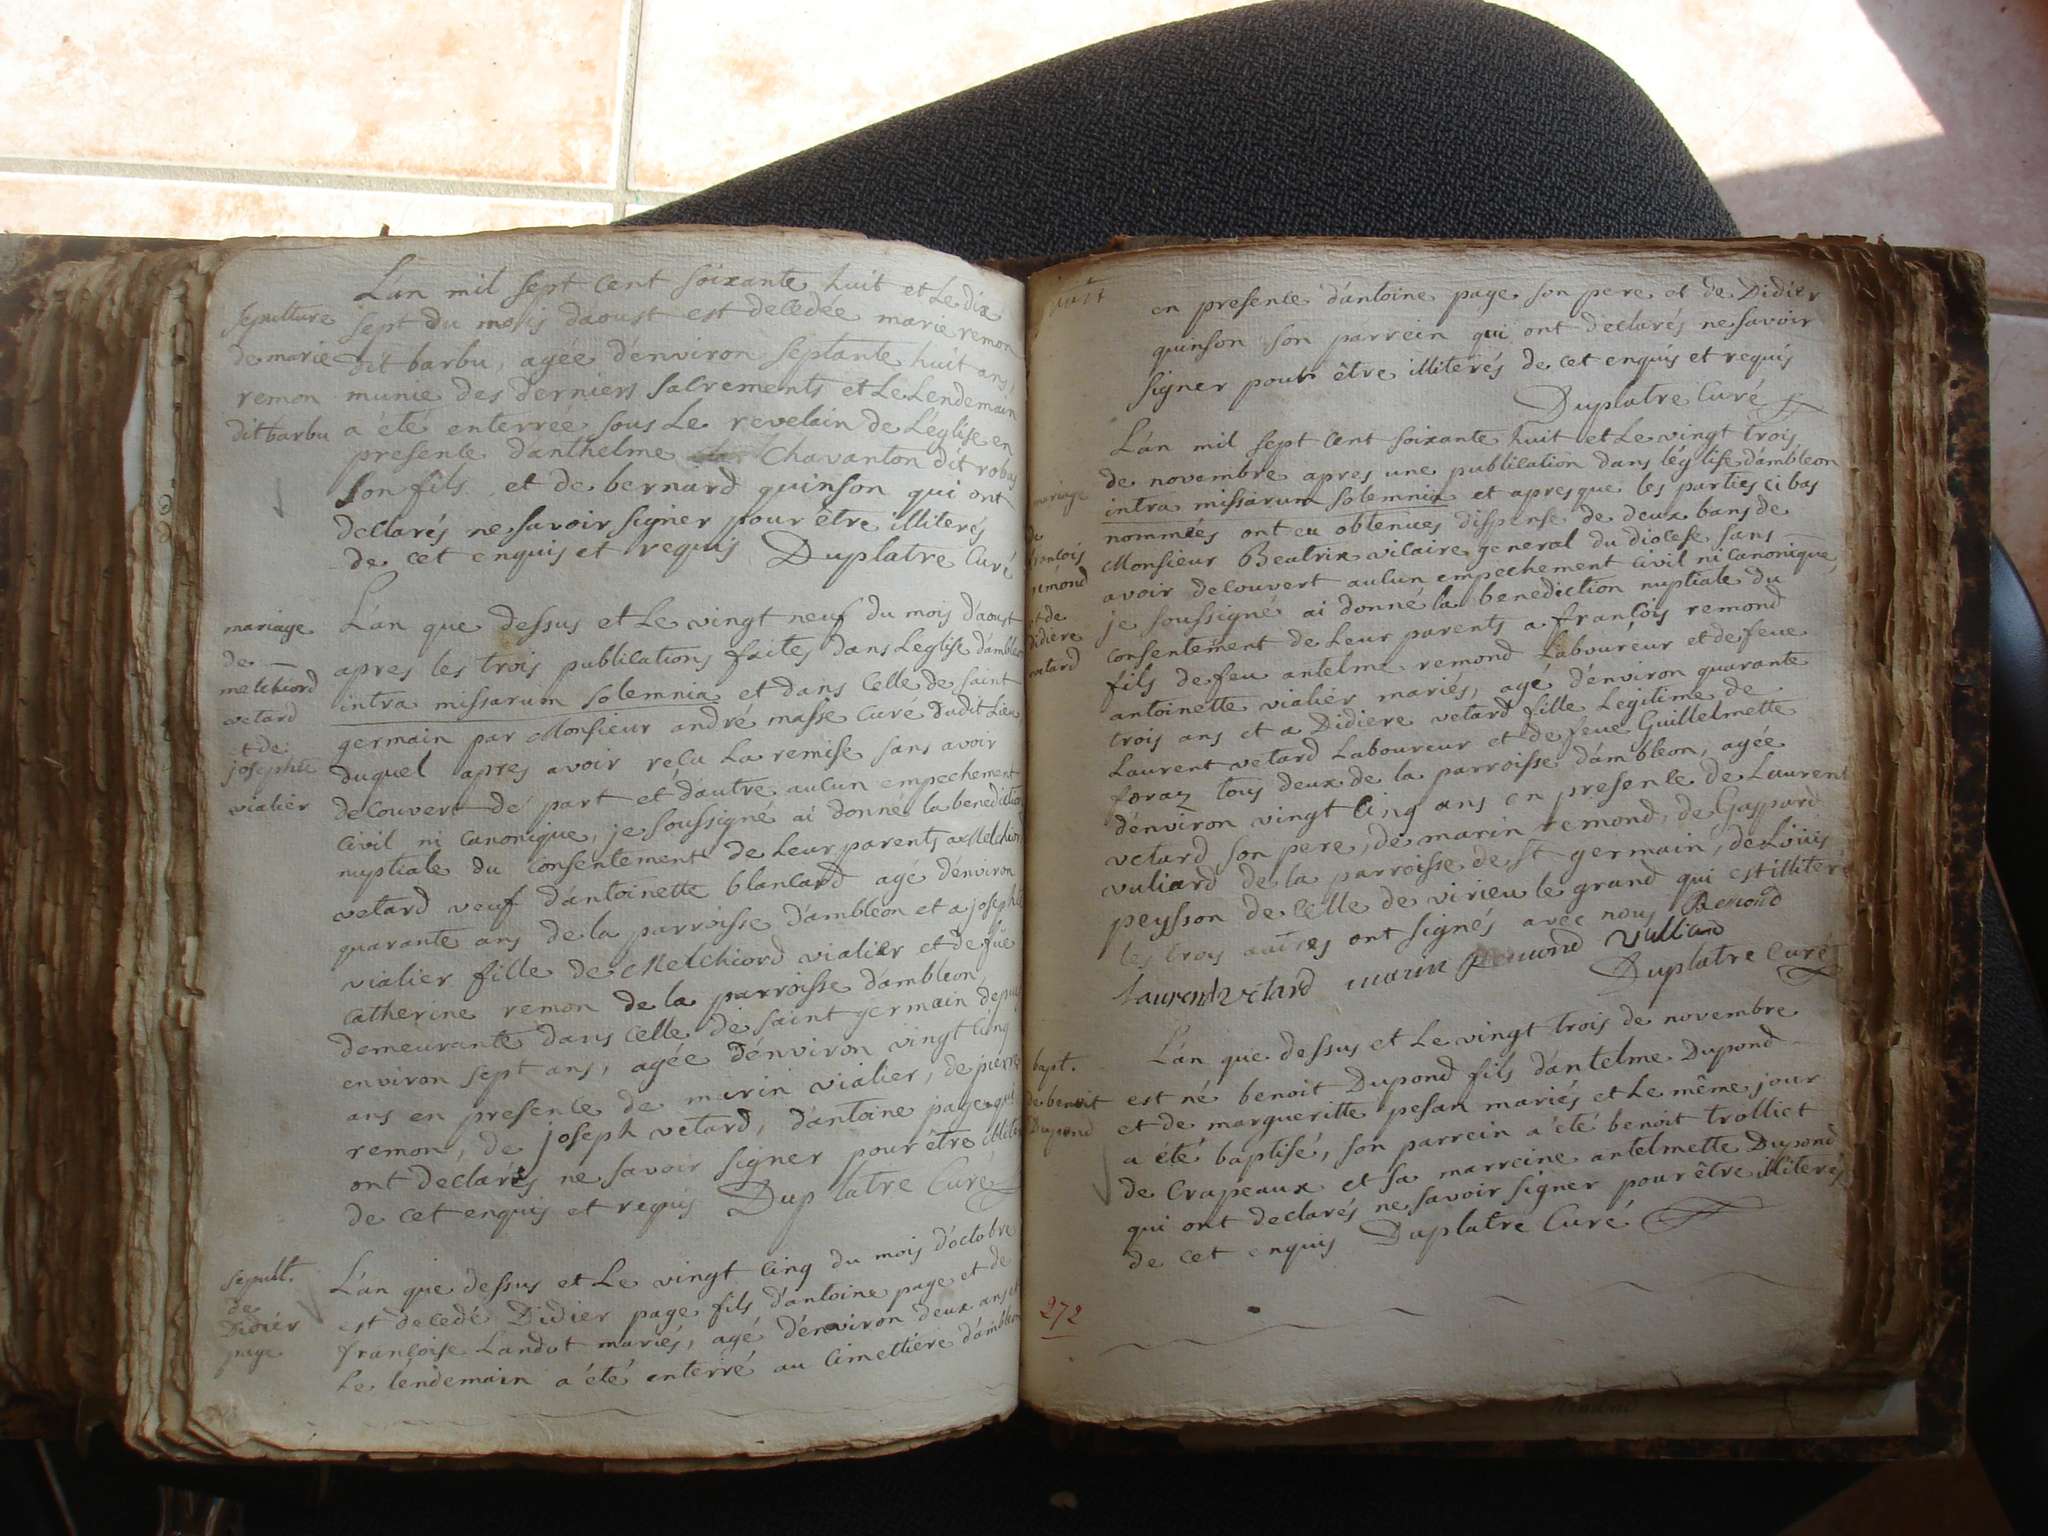 L'an mil sept cent soixante huit et Le dix
sepulture
sept du mois daoust est decedée marie remon
de marie
dit barbu, agée d'environ septante huit ans,
remon
munie des derniers sacrements et Le Lendemain
dit barbu
a été enterrée sous Le revelain de L'église en
presence d'anthelme Chavanton dit robas
son fils et de bernard quinson qui ont
declarés ne savoir signer pour être illiterés
de cet enquis et requis Duplatre Curé
mariage
de
melchiord
vetard
et de
josephte
vialier
L'an que dessus et Le vingt neuf du mois d'aoust
apres les trois publications faites dans Leglise d'ambleon
intra missarum solemnia et dans Celle de saint
germain par Monsieur andré masse Curé dudit Lieu
duquel apres avoir reçu La remise sans avoir
decouvert de part et d'autre aucun empechement
Civil ni Canonique, je soussigné ai donné la benediction
nuptiale du Consentement de Leur parents a Melchiord
vetard veuf d'antoinette blancard agé d'environ
quarante ans de la parroisse d'ambleon et a josephte
vialier fille de Melchiord vialier et de füe
Catherine remon de la parroisse d'ambleon,
demeurante dans Celle de saint germain depuis
environ sept ans, agée d'environ vingt Cinq
ans en presence de marin vialier, de pierre
remon, de joseph vetard, d'antoine page qui
ont declarés ne savoir signer pour être illiterés
de cet enquis et requis Duplatre Curé
sepult.
de
Didier
page
L'an que dessus et Le vingt Cinq du mois d'octobre
est decedé Didier page fils d'antoine page et de
françoise Landot mariés, agé d'environ deux ans et
Le lendemain a été enterré au Cimettiere d'ambleon
en presence d'antoine page son pere et de Didier
quinson son parrein qui ont declarés ne savoir
signer pour être illiterés de cet enquis et requis
Duplatre Curé
mariage
de
françois
remond
et de
didiere
vetard
L'an mil sept cent soixante huit et Le vingt trois
de novembre apres une publication dans léglise d'ambleon
intra missarum solemnia et apres que les parties ci bas
nommées ont eu obtenues dispense de deux bans de
Monsieur Beatrix vicaire general du diocese sans
avoir decouvert aucun empechement Civil ni Canonique,
je soussigné ai donné la benediction nuptiale du
Consentement de Leur parents a françois remond
fils de feu antelme remond Laboureur et de feue
antoinette vialier mariés, agé d'environ quarante
trois ans et a Didiere vetard fille Legitime de
Laurent vetard Laboureur et de feue Guillelmette
foraz tous deux de la parroisse d'ambleon, agée
d'environ vingt Cinq ans en presence de Laurent
vetard son pere, de marin remond, de Gaspard
vuliard de la parroisse de st germain, de Louis
peysson de Celle de virieu le grand qui est illiteré
les trois autres ont signés avec nous Remond
Laurent vetard marin Remond Vulliard
Duplatre Curé
bapt.
de benoit
Dupond
L'an que dessus et Le vingt trois de novembre
est né benoit Dupond fils d'antelme Dupond
et de margueritte pesan mariés et Le même jour
a été baptisé, son parrein a été benoit trolliet
de Crapeaux et sa marreine antelmette Dupond
qui ont declarés ne savoir signer pour être illiterés
de cet enquis Duplatre Curé
272